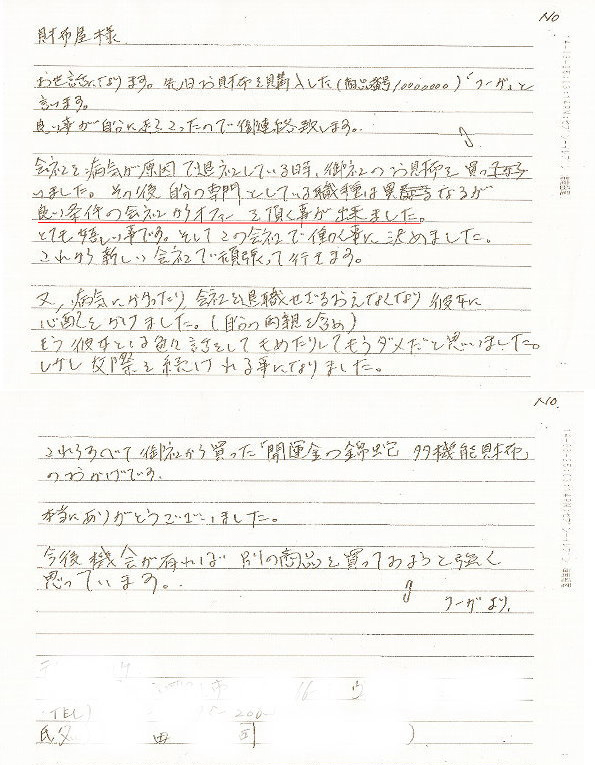 No
財布屋様
お世話になります。先日お財布を購入した(商品番号10000000)「クーガ」と
言います。
良い事が自分に起こったので御連絡致します。
会社を病気が原因で退社している時、御社のお財布を買
いました。その後自分の専門としている職種は異なるが
良い条件の会社からオファーを頂く事が出来ました。
とても嬉しい事です。そしてこの会社で働く事に決めました。
これから新しい会社で頑張って行きます。
又、病気にかかったり会社を退職せざるおえなくなり彼女に
心配をかけました。(自分の両親を含め)
もう彼女とは色々話をしてもめたりしてもうダメだと思いました。
しかし交際を続けれる事になりました。
No.
これらすべて御社から買った「開運金の錦蛇 多機能財布」
のおかげです。
本当にありがとうございました。
今後機会が有れば別の商品を買っておようと強く
思っています。
クーガより.
TEL)
氏名 )